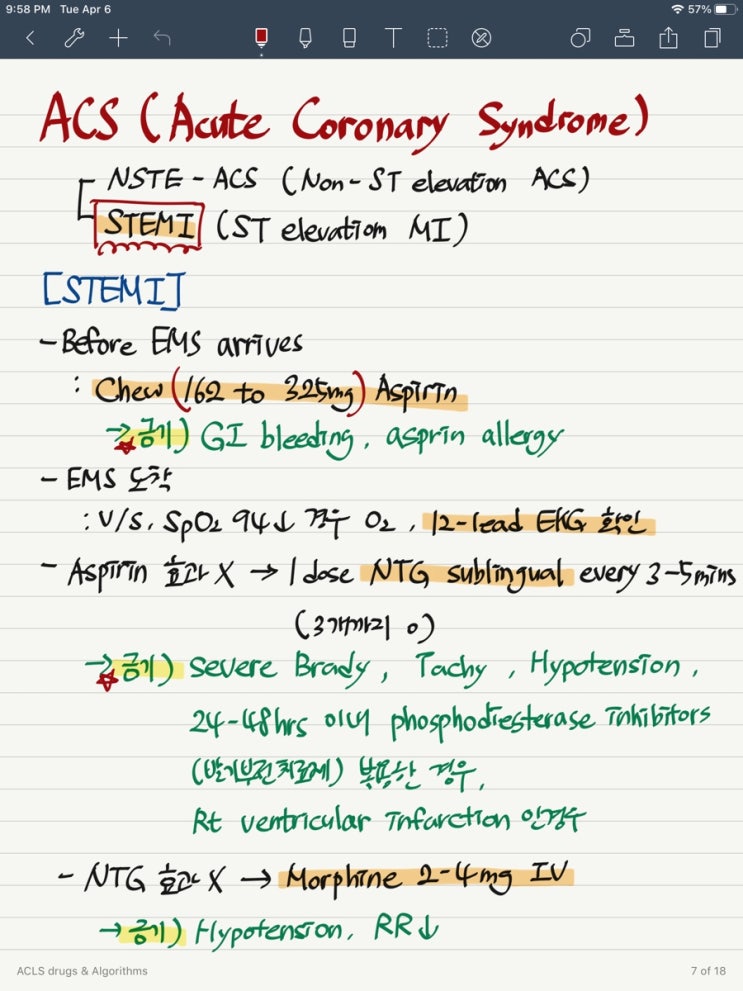 9:58 PM Tue Apr 6
57%
T
ACS (Acute Coronary Syndrome)
NSTE - ACS (Non-ST elevation ACS)
STEMI (ST elevation MI)
[STEMI]
- Before EMS arrives
: Chew (162 to 325mg) Aspirin
→ 금기) GI bleeding, asprin allergy
- EMS 도착
: V/S, SpO2 94↓ 경우 O2, 12-lead EKG 확인
- Aspirin 효과 X → 1 dose NTG sublingual every 3-5mins
(3개까지 o)
→ 금기) Severe Brady, Tachy, Hypotension,
24-48hrs 이내 phosphodiesterase inhibitors
(발기부전치료제) 복용한 경우,
Rt ventricular Infarction 인경우
- NTG 효과 X → Morphine 2-4mg IV
→ 금기) Hypotension, RR↓
ACLS drugs & Algorithms
7 of 18